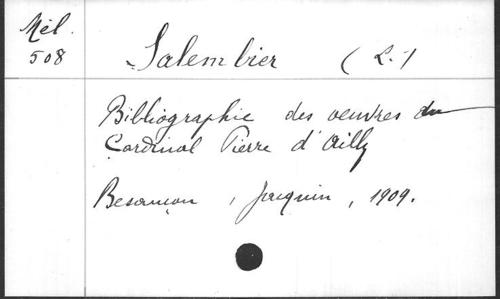 Mél.
508
Salembier (L.)
Bibliographie des oeuvres du
Cardinal Pierre d'Ailly
Besançon, Jacquin, 1909.